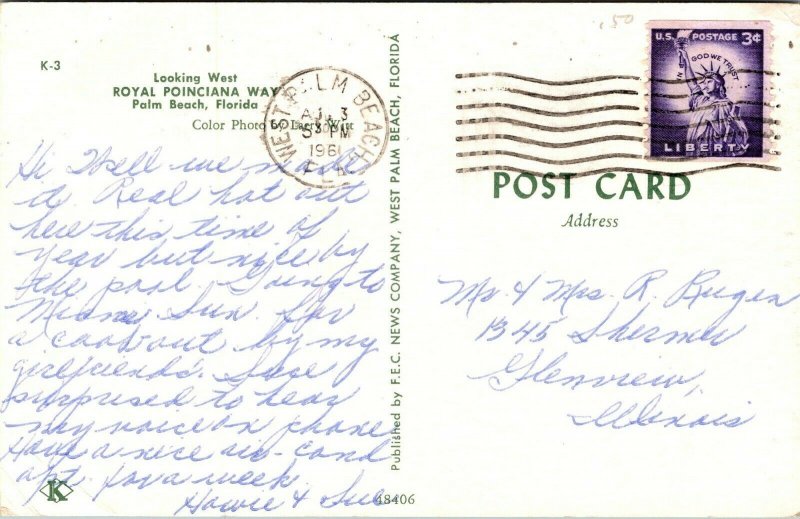 .50
K-3
Looking West
ROYAL POINCIANA WAY
Palm Beach, Florida
Color Photo by
WEST PALM BEACH
3
PM
1961
FLA.
Hi Well we made
it. Real hot out
here this time of
year but nice by
the pool. Going to
Miami Sun. for
a cookout by my
girlfriends. Sure
surprised to hear
my voice on phone
Have a nice air-cond
apt. for a week.
Howie & Sue
K
Published by F.E.C. NEWS COMPANY, WEST PALM BEACH, FLORIDA
48406
U.S. POSTAGE 3¢
IN GOD WE TRUST
LIBERTY
POST CARD
Address
Mr & Mrs. R. Rugen
1345 Shermer
Glenview,
Illinois